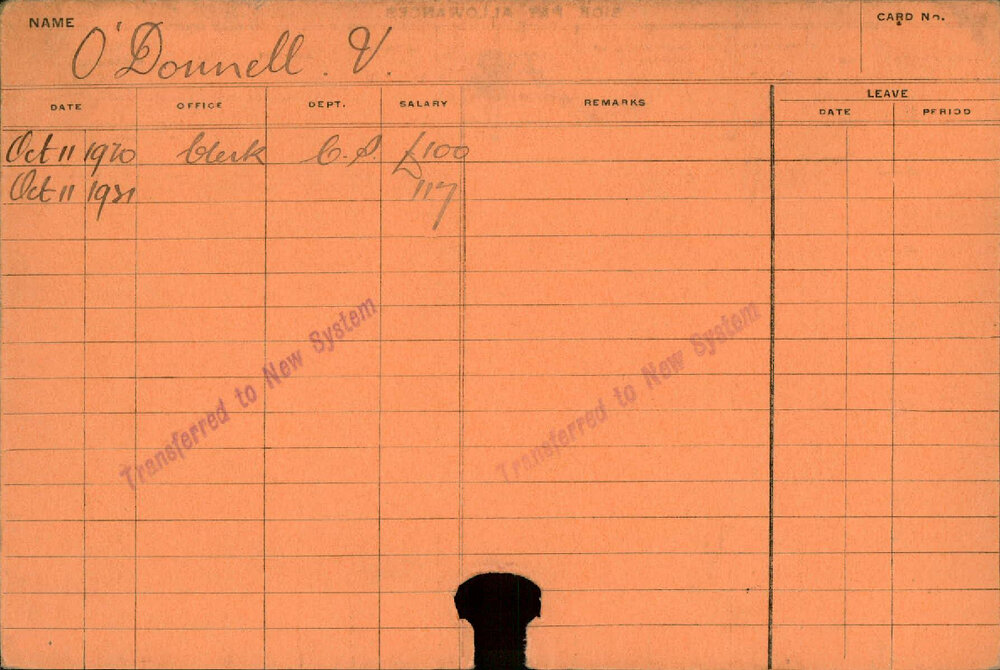 NAME O'Donnell. V. CARD No.
DATE OFFICE DEPT. SALARY REMARKS LEAVE
DATE PERIOD
Oct 11 1920 Clerk C.S. £100
Oct 11 1921 117
Transferred to New System
Transferred to New System